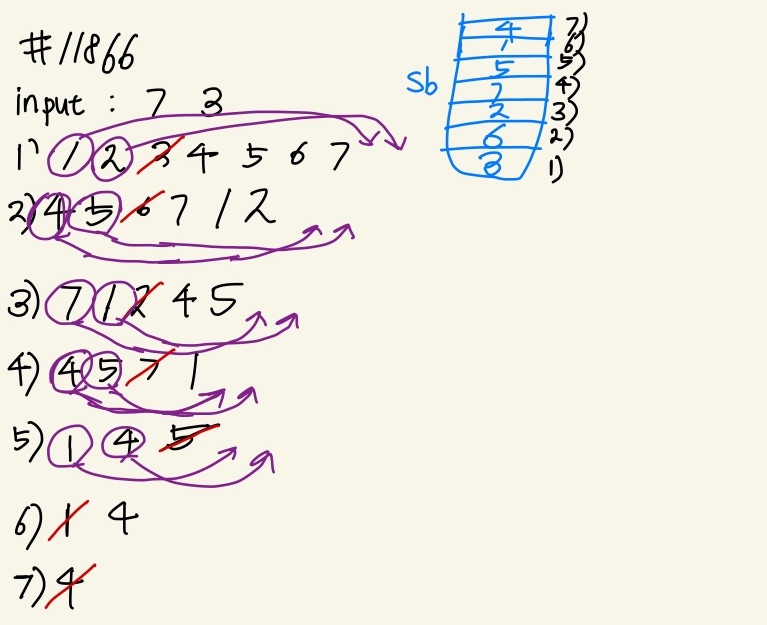 #11866
input : 7 3
1) 1 2 3 4 5 6 7
2) 4 5 6 7 1 2
3) 7 1 2 4 5
4) 4 5 7 1
5) 1 4 5
6) 1 4
7) 4
Sb
4 7)
1 6)
5 5)
7 4)
2 3)
6 2)
3 1)